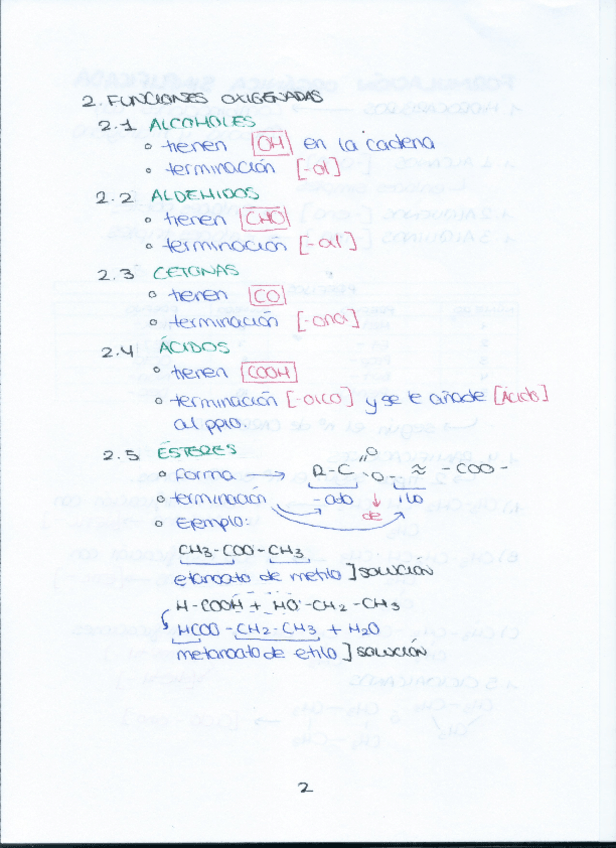 2. FUNCIONES OXIGENADAS
2.1 ALCOHOLES
° tienen [OH] en la cadena
° terminación [-ol]
2.2 ALDEHIDOS
° tienen [CHO]
° terminación [-al]
2.3 CETONAS
° tienen [CO]
° terminación [-ona]
2.4 ÁCIDOS
° tienen [COOH]
° terminación [-oico] y se le añade [Ácido]
al ppio.
2.5 ÉSTERES
O
° Forma → R-C O- ≈ -COO-
° terminación -ato ilo
de
° Ejemplo:
CH3-COO-CH3
etanoato de metilo ] SOLUCIÓN
H-COOH + HO-CH2-CH3
HCOO-CH2-CH3 + H2O
metanoato de etilo ] SOLUCIÓN
2